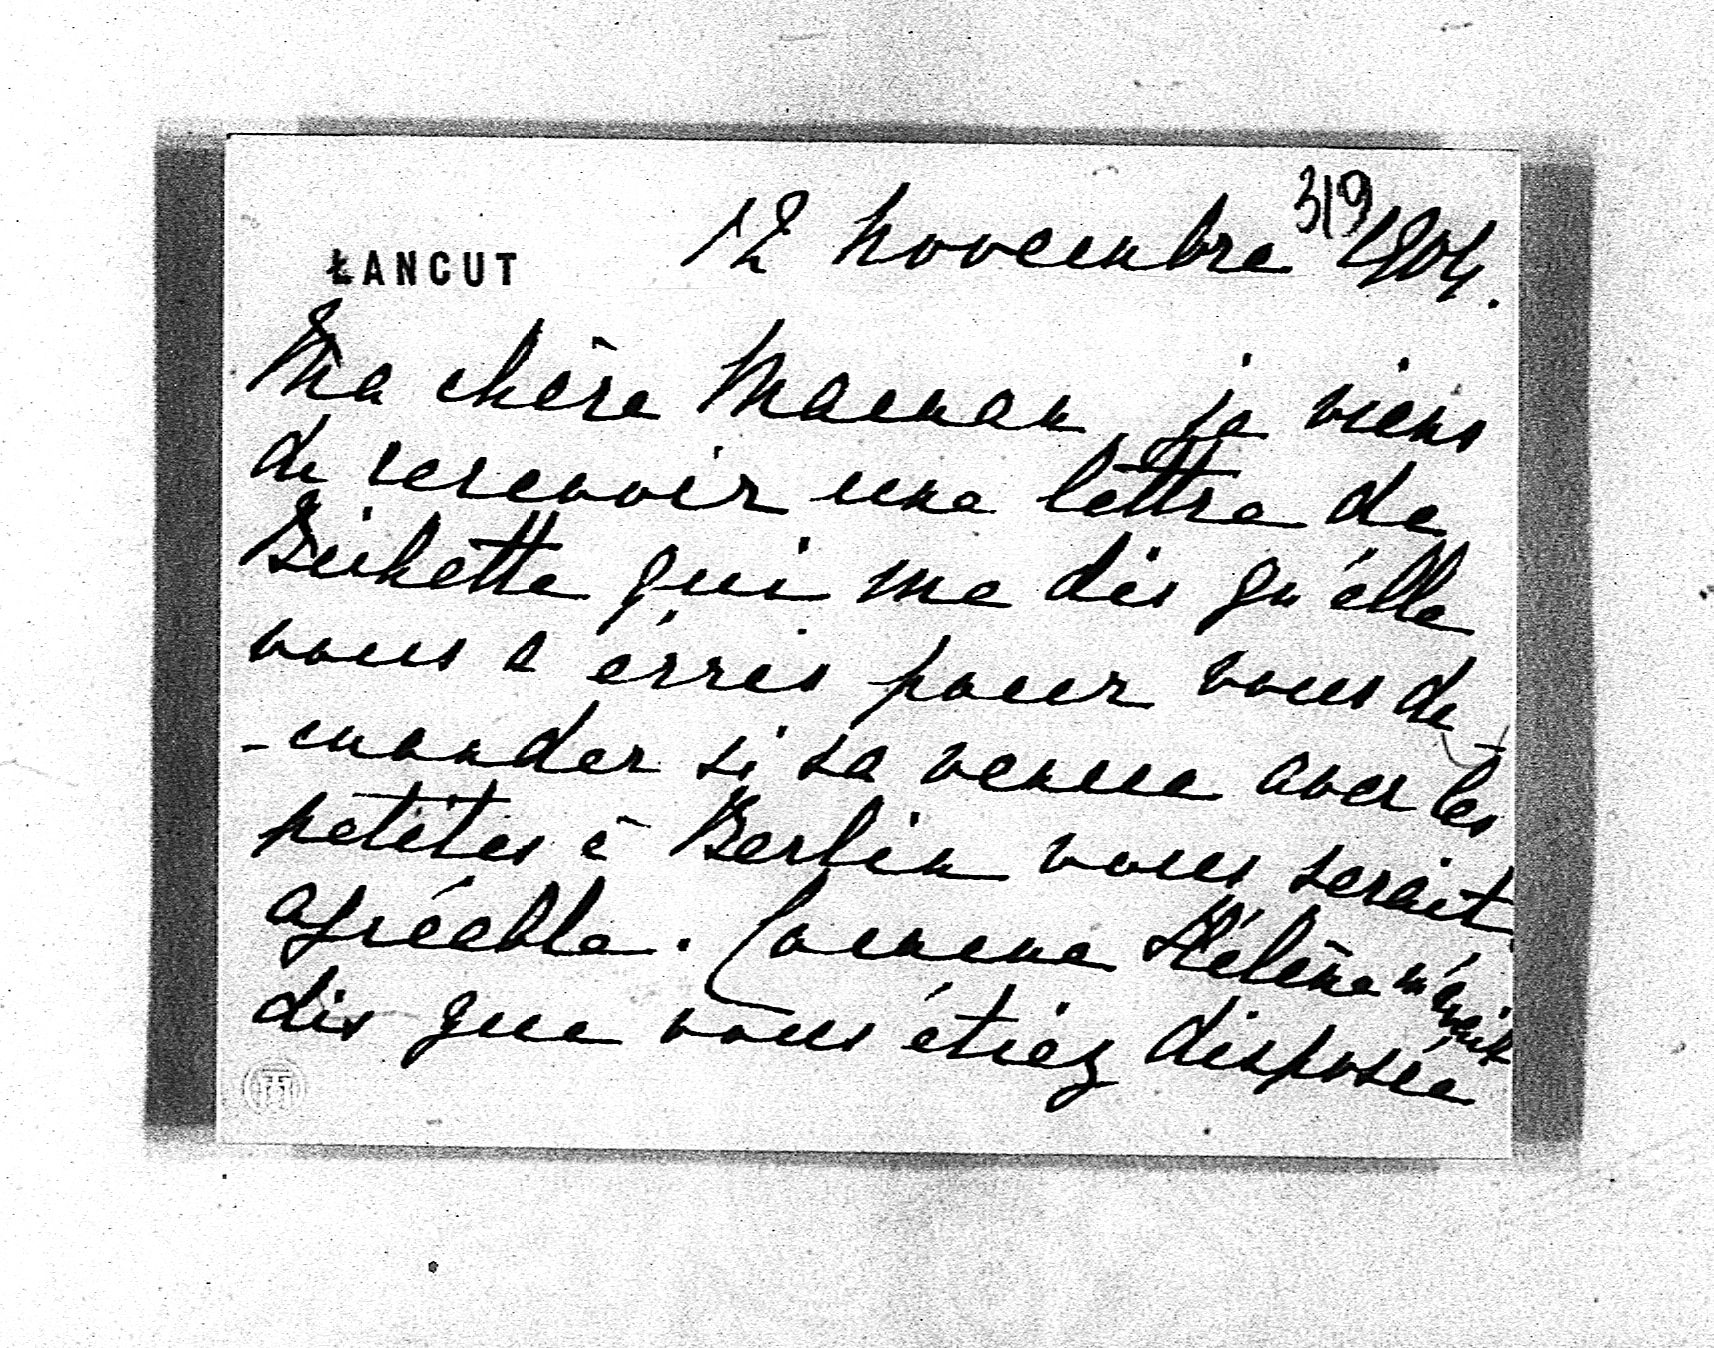 319
ŁANCUT 12 novembre 1904.
Ma chère Maman, je viens
de recevoir une lettre de
Bichette qui me dis qu'elle
vous a écris pour vous de-
-mander si sa venue avec les
petites à Berlin vous serait
agréable. Comme Hélène m'avait
dis que vous étiez disposée